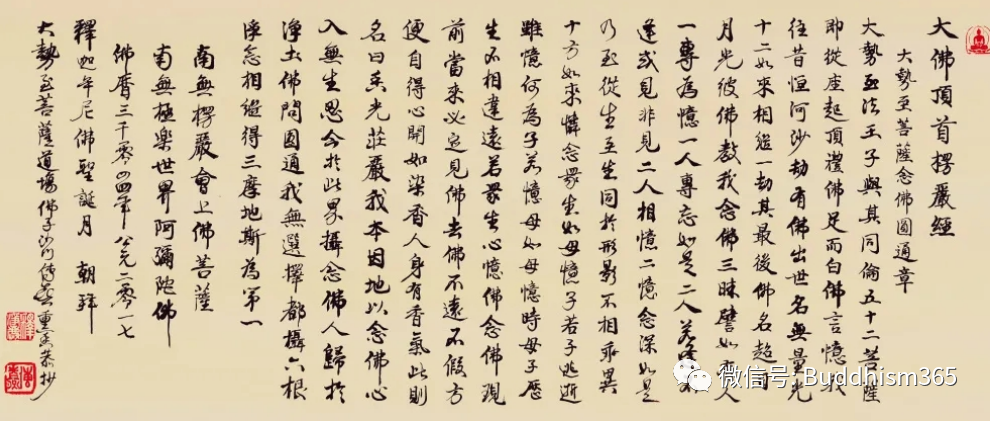 大佛頂首楞嚴經
大勢至菩薩念佛圓通章
大勢至法王子與其同倫五十二菩薩
即從座起頂禮佛足而白佛言憶我
往昔恒河沙劫有佛出世名無量光
十二如來相繼一劫其最後佛名超日
月光彼佛教我念佛三昧譬如有人
一專為憶一人專忘如是二人若逢不
逢或見非見二人相憶二憶念深如是
乃至從生至生同於形影不相乖異
十方如來憐念衆生如母憶子若子逃逝
雖憶何為子若憶母如母憶時母子歷
生不相違遠若衆生心憶佛念佛現
前當來必定見佛去佛不遠不假方
便自得心開如染香人身有香氣此則
名曰香光莊嚴我本因地以念佛心
入無生忍今於此界攝念佛人歸於
淨土佛問圓通我無選擇都攝六根
淨念相繼得三摩地斯為第一
南無楞嚴會上佛菩薩
南無極樂世界阿彌陀佛
佛曆三千零四四年 公元二零一七
釋迦牟尼佛聖誕月 朝拜
大勢至菩薩道場佛子沙門傳熏香恭抄
微信号: Buddhism365